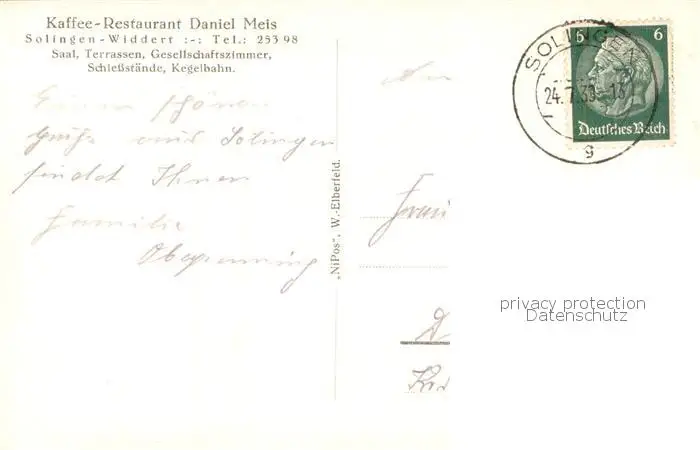 Kaffee-Restaurant Daniel Meis
Solingen-Widdert :-: Tel.: 253 98
Saal, Terrassen, Gesellschaftszimmer,
Schießstände, Kegelbahn.
Einen schönen
Gruß aus Solingen
sendet Ihnen
Familie
"NiPos", W.-Elberfeld.
An
SOLINGEN
24.7.33.-18
g
6 6
Deutsches Reich
privacy protection
Datenschutz